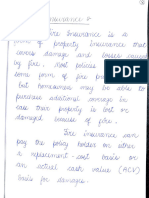 Insurance :-
Fire Insurance is a
form of property insurance that
covers damage and losses caused
by fire. Most policies
some form of fire
but homeowners may be able to
purchase additional coverage in
case their property is lost or
damaged because of fire.
Fire insurance can
pay the policy holder on either
a replacement-cost basis or
an actual cash value (ACV)
basis for damages.